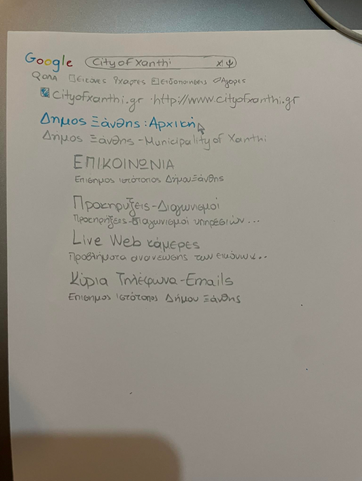 Google City of Xanthi
Όλα Εικόνες Χάρτες Ειδοποιήσεις Αγορές
Cityofxanthi.gr · http://www.cityofxanthi.gr
Δημος Ξάνθης: Αρχική
Δημος Ξάνθης - Municipality of Xanthi
ΕΠΙΚΟΙΝΩΝΙΑ
Επισημος ιστότοπος Δήμου Ξάνθης
Προκηρύξεις - Διαγωνισμοί
Προκηρήξεις - διαγωνισμοί υπηρεσιών...
Live Web κάμερες
Προβλήματα ανανέωσης των εικόνων..
Κύρια Τηλέφωνα - Emails
Επισημος ιστότοπος Δήμου Ξάνθης